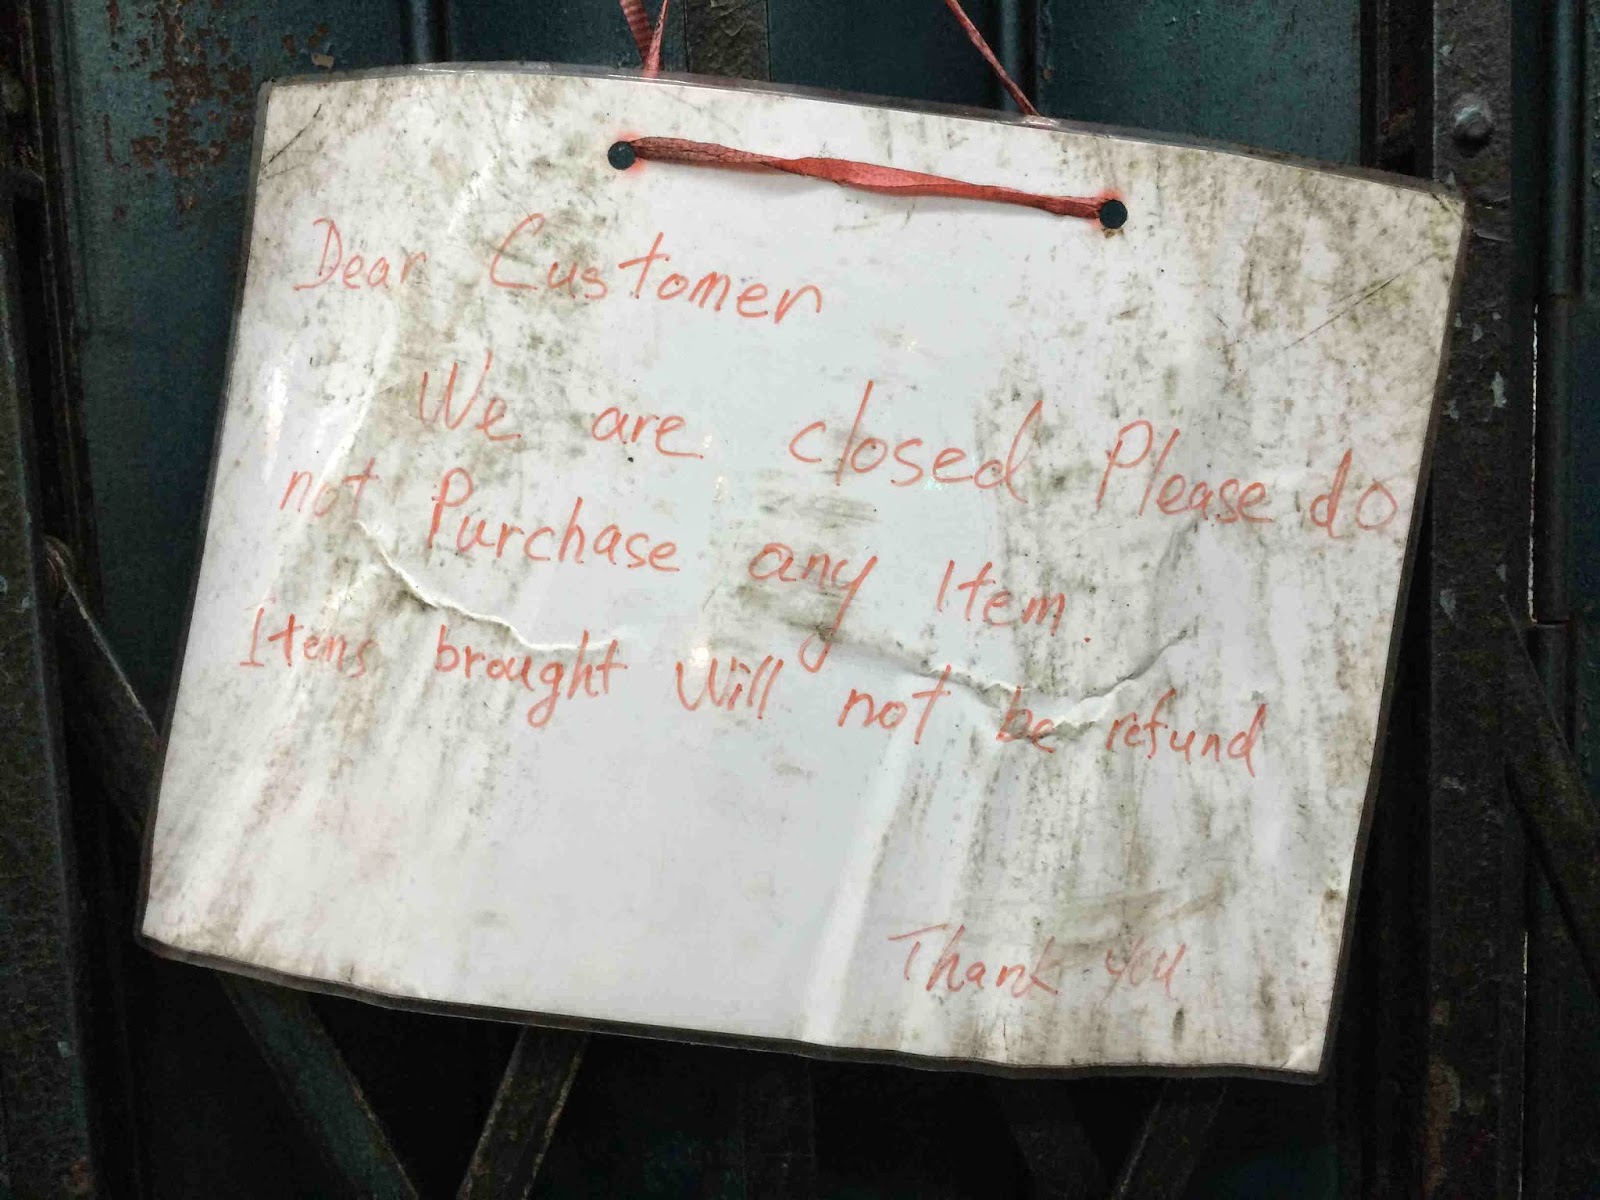 Dear Customer
We are closed Please do
not Purchase any Item.
Items brought Will not be refund
Thank you